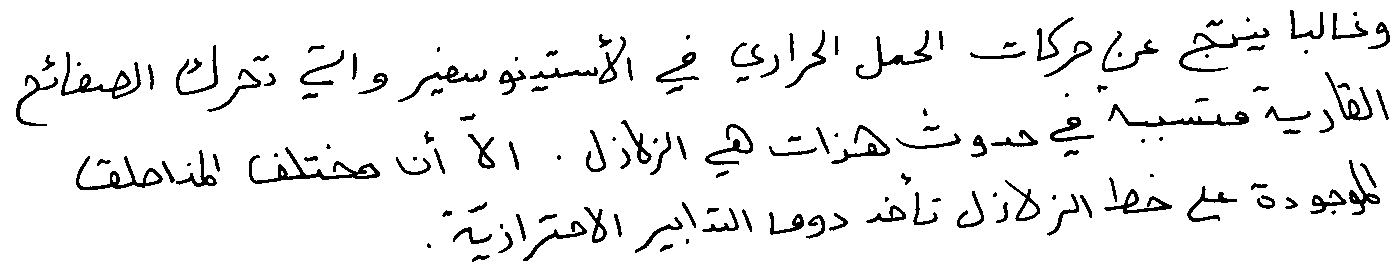 وغالبا ينتج عن حركات الحمل الحراري في الأستينوسفير والتي تحرك الصفائح
القارية متسببة في حدوث هزات هي الزلازل . الاّ أن مختلف المناطق
الموجودة على خط الزلازل تأخد دوما التدابير الاحترازيّة .